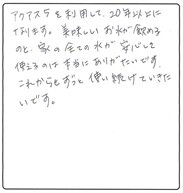 アクアス5を利用して、20年以上に
なります。美味しいお水が飲める
のと、家の全ての水が安心して
使えるのは本当にありがたいです。
これからもずっと使い続けていきた
いです。